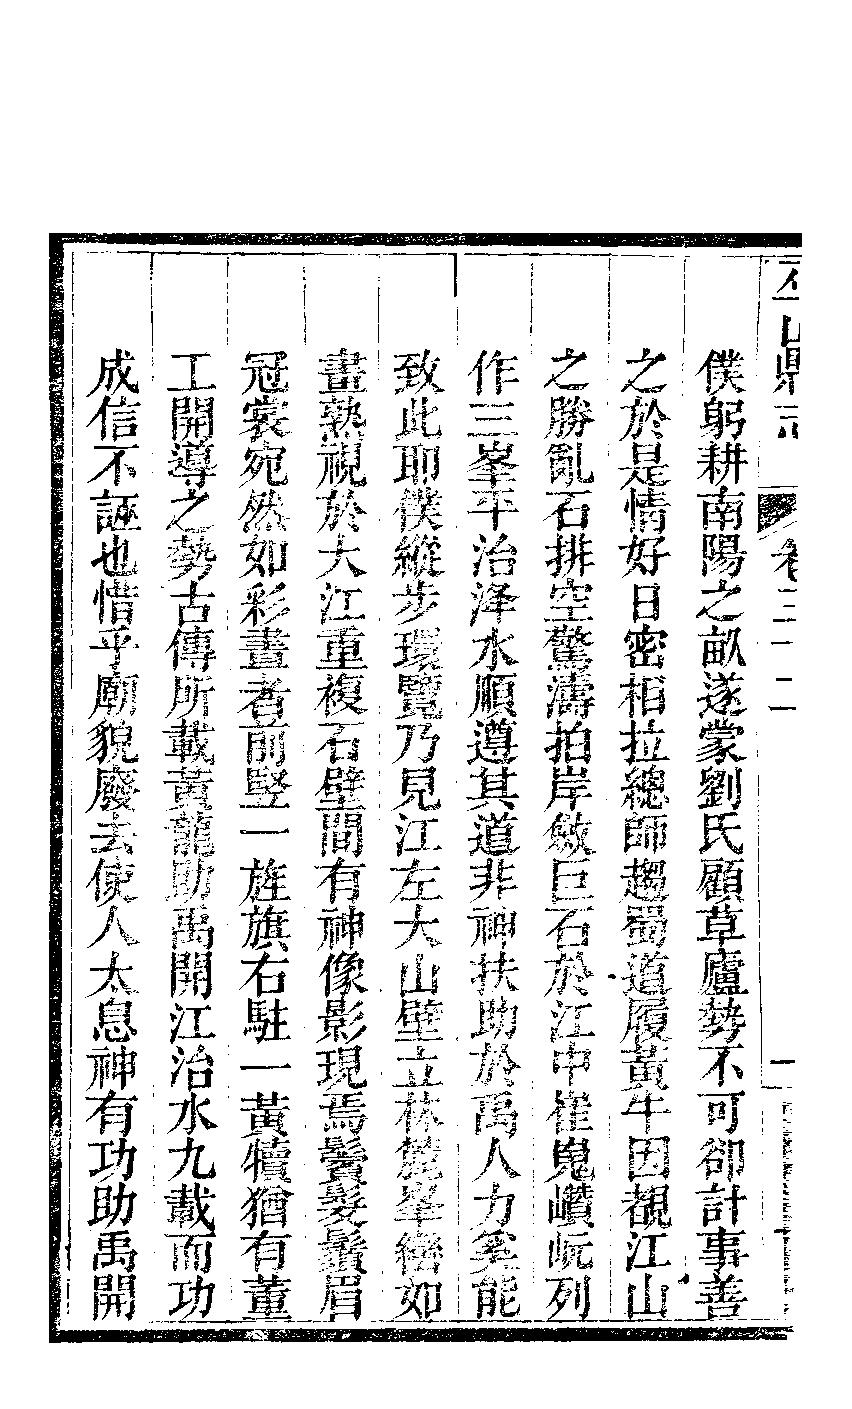 巫山縣志 卷三十二
僕躬耕南陽之畝遂蒙劉氏顧草廬勢不可卻計事善
之於是情好日密相拉總師趨蜀道履黃牛因覩江山
之勝亂石排空驚濤拍岸斂巨石於江中崔嵬巑岏列
作三峯平治洚水順遵其道非神扶助於禹人力奚能
致此耶僕縱步環覽乃見江左大山壁立林麓峯巒如
畫熟視於大江重複石壁間有神像影現焉鬢髮鬚眉
冠裳宛然如彩畫者前竪一旌旗右駐一黃犢猶有董
工開導之勢古傳所載黃龍助禹開江治水九載而功
成信不誣也惜乎廟貌廢去使人太息神有功助禹開